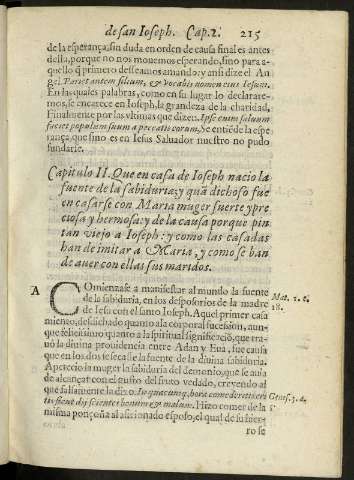 de san Ioseph. Cap.2. 215
de la esperança, sin duda en orden de causa final es antes
della, porque no nos mouemos esperando, sino para a-
quello q̃ primero desseamos amando: y ansi dize el An
gel. Pariet autem filium, & vocabis nomen eius Iesum.
En las quales palabras, como en su lugar lo declarare-
mos, se encarece en Ioseph, la grandeza de la charidad,
Finalmente por las vltimas que dizen. Ipse enim saluum
faciet populum suum a peccatis eorum, Se entiẽde la espe
rança, que sino es en Iesus Saluador nuestro no pudo
fundarse.
Capitulo II. Que en casa de Ioseph nacio la
fuente de la sabiduria: y quã dichoso fue
en casarse con Maria muger fuerte y pre
ciosa y hermosa: y de la causa porque pin
tan viejo a Ioseph: y como las casadas
han de imitar a Maria, y como se han
de auer con ellas sus maridos.
A COmiençase a manifestar al mundo la fuente
de la sabiduria, en los desposorios de la madre
de Iesu con el santo Ioseph. Aquel primer casa
Mat. 1. c.
18.
miento, desdichado quanto a la corporal sucession, aun-
que felicissimo quanto a la spiritual significació, que tra
uò la diuina prouidencia entre Adan y Eua, fue causa
que en los dos se secasse la fuente de la diuina sabiduria.
Aperecio la muger la sabiduria del demonio, que se auia
de alcançar con el gusto del fruto vedado, creyendo al
que falsamente la dixo. In quacunq, hora comederetis eri
Genes. 3. a.
5
tis sicut dij scientes bonum & malum. Hizo comer de la
misma ponçoña al aficionado esposo, el qual de su fuer
ro se